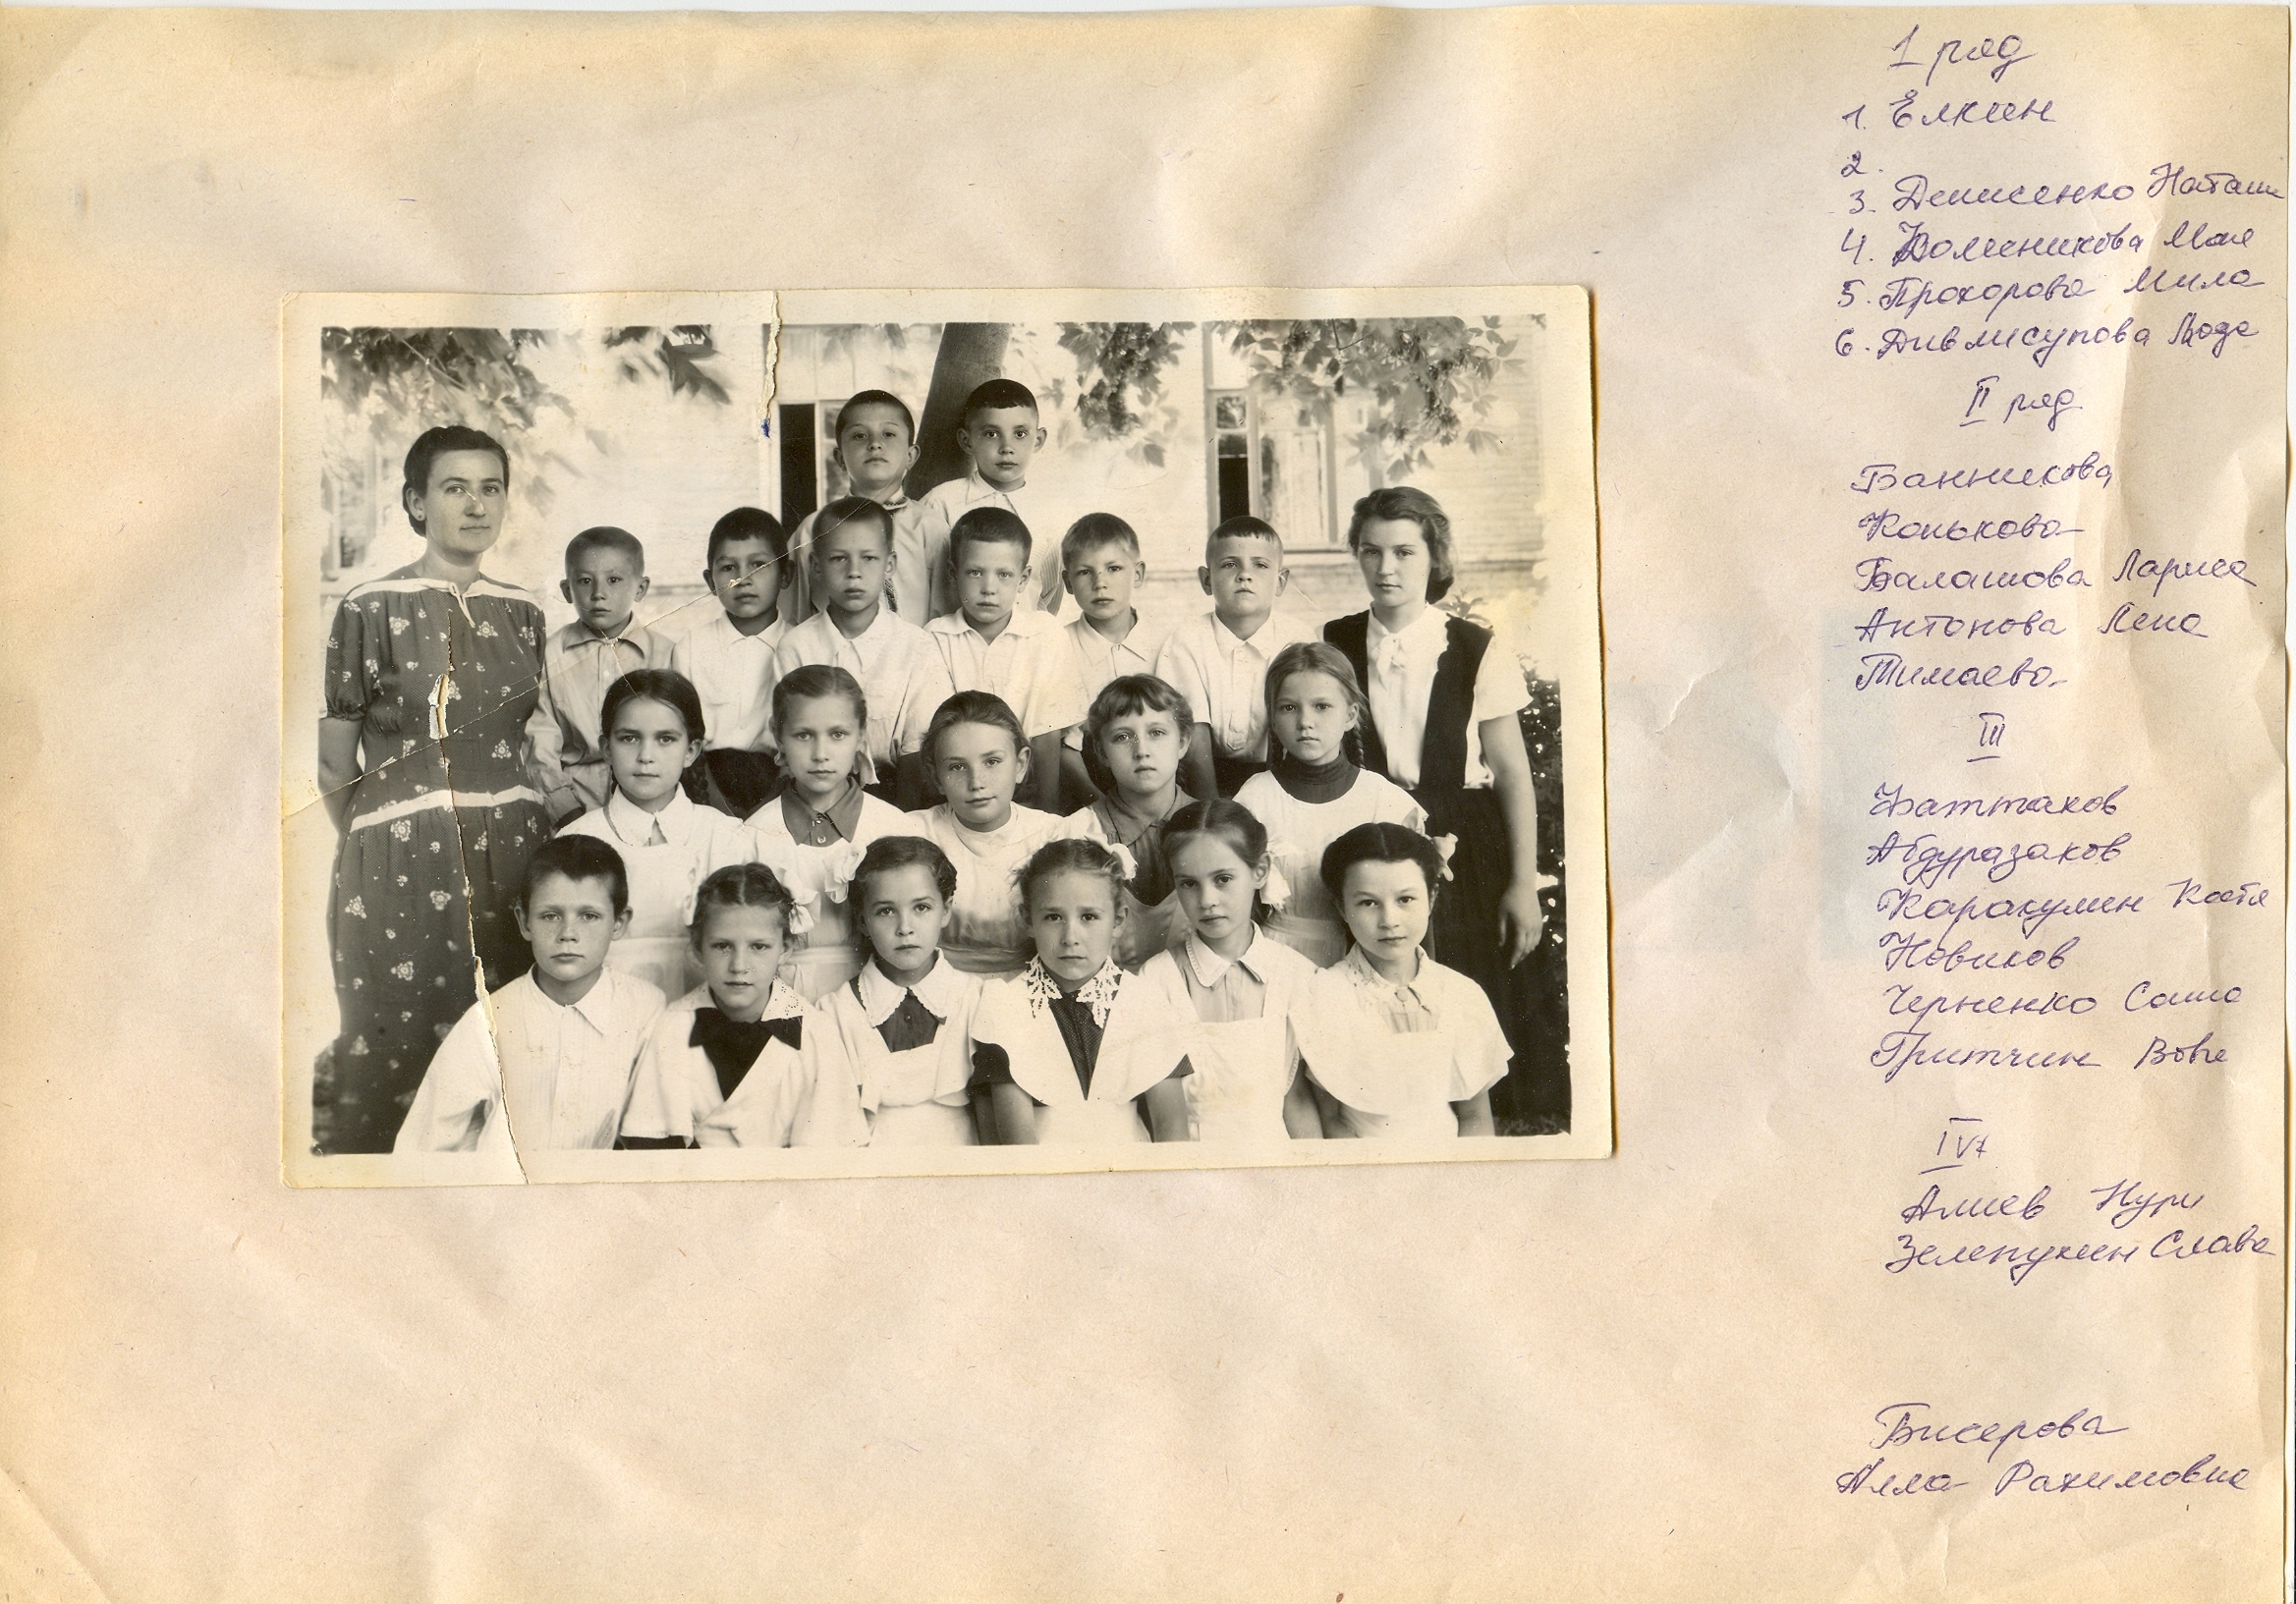 1 ряд
1. Ёлкин
2.
3. Денисенко Наташа
4. Майя
5. Прохорова Мила
6. Дивлисупова
II ряд
Банникова
Конькова
Балашова Лариса
Антонова Лена
Тимаева
III
Баттаков
Абдуразаков
Каракулин Костя
Новиков
Черненко Саша
Гритчин Вова
IV
Алиев Нури
Зелепукин Слава
Бисерова
Алла Рахимовна